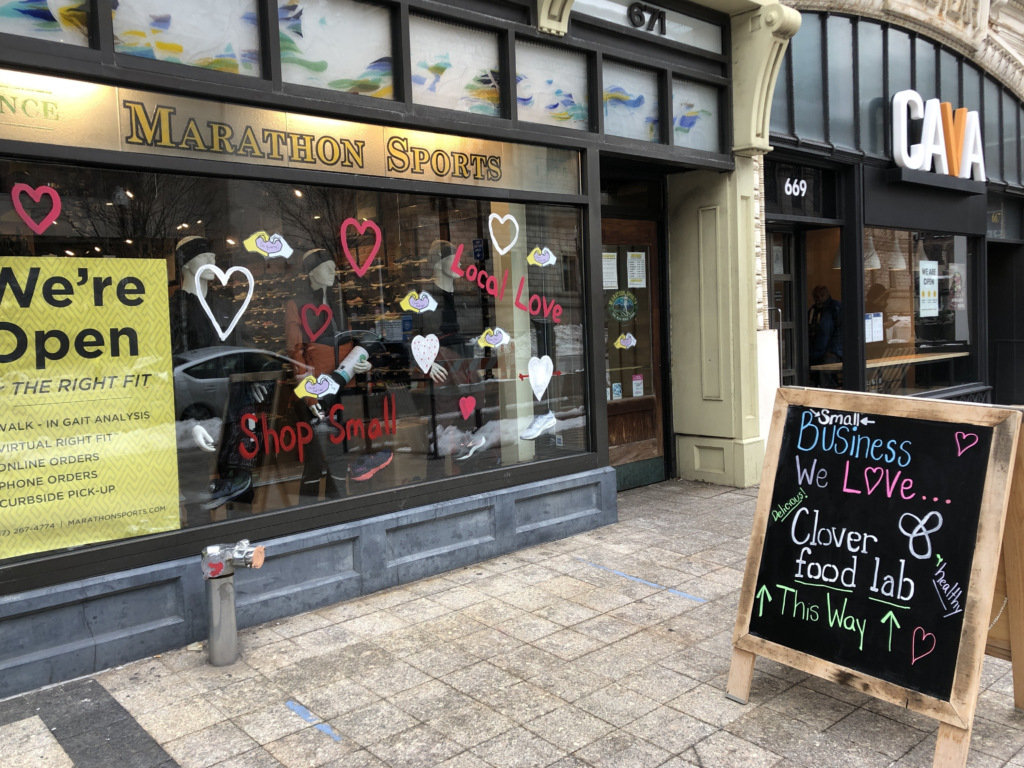 671
NCE
MARATHON SPORTS
CAVA
669
667
We're
Open
THE RIGHT FIT
WALK - IN GAIT ANALYSIS
VIRTUAL RIGHT FIT
ONLINE ORDERS
PHONE ORDERS
CURBSIDE PICK-UP
267-4774 | MARATHONSPORTS.COM
Local Love
Shop Small
WE ARE
OPEN
Small
Business
We Love...
Delicious!
Clover
food lab
healthy
This Way